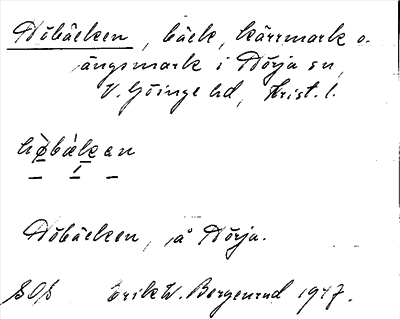 Höbäcken, bäck, kärrmark o.
ängsmark i Hörja sn,
V. Göinge hd, Krist. l.
høbækan
Höbäcken, å Hörja.
Erik W. 1947.